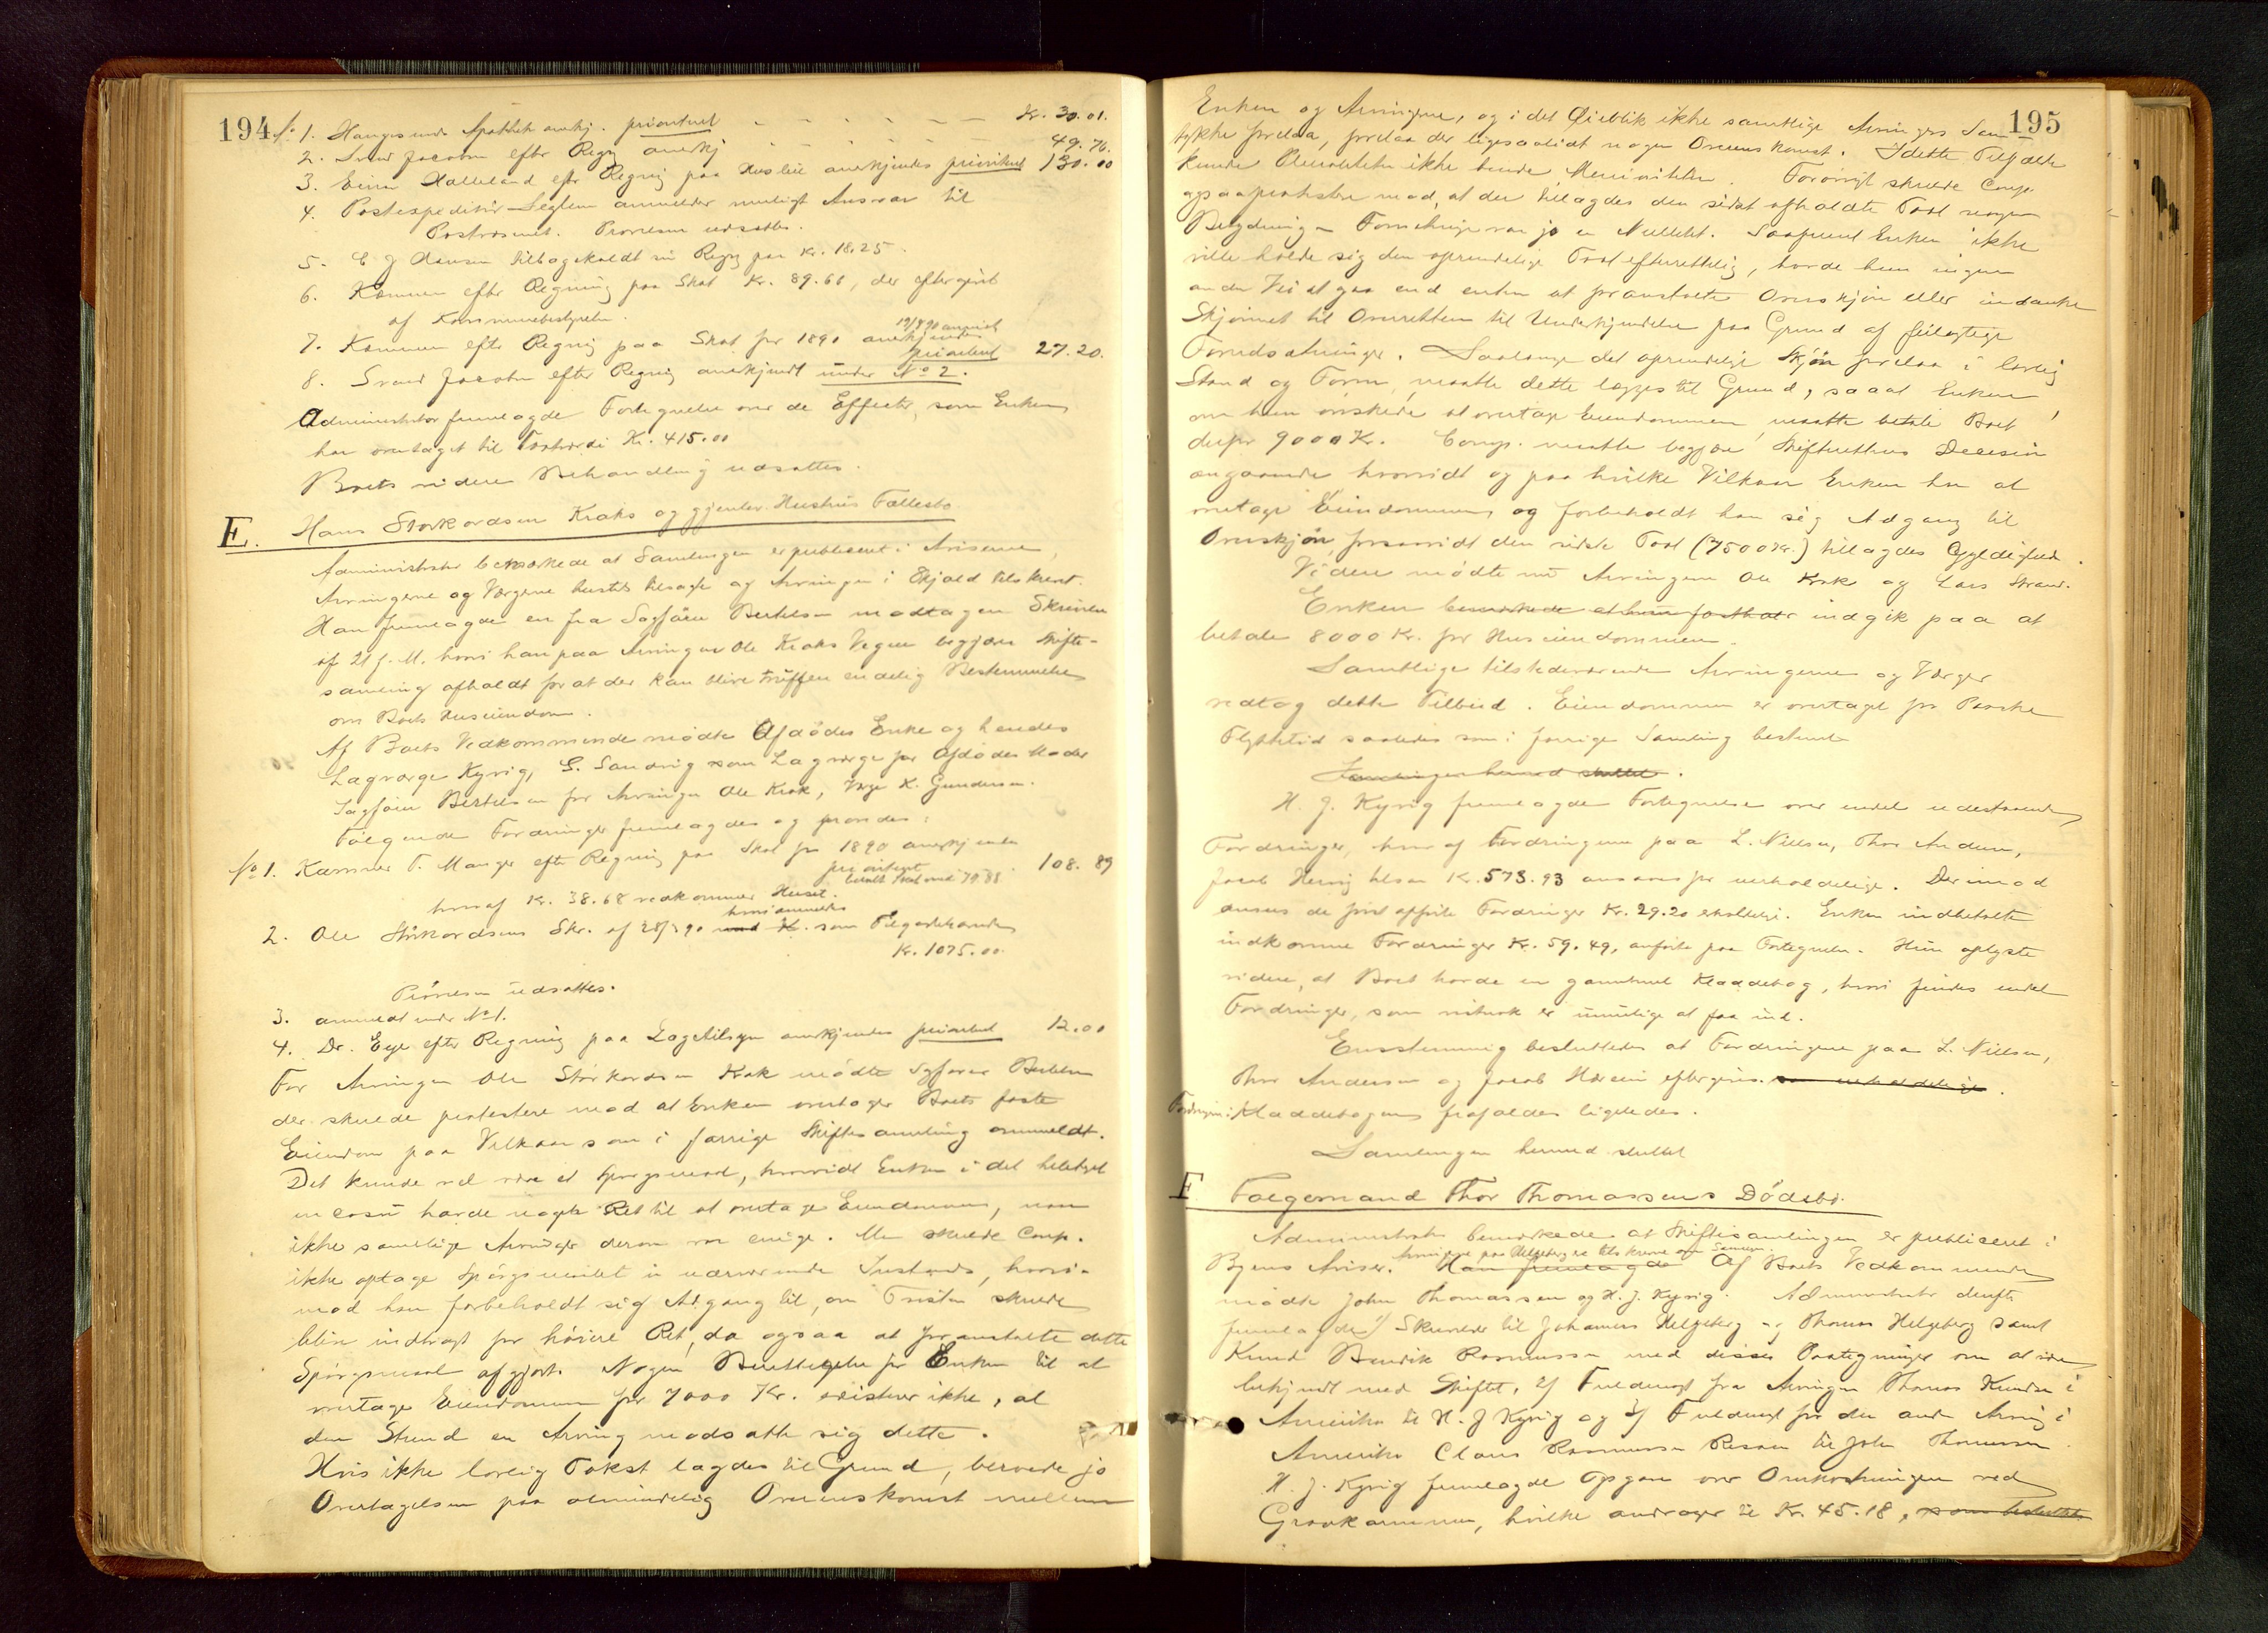 194
No 1. Haugesunds Apothek anerkj. prioriteret - - - - - - Kr. 30.01.
2. Svend Jacobsen efter Regng anerkj - - - - - 49.76.
3. Einar Hatteland efter Regning paa Husleie anerkjendes prioriteret 130.00
4. Postexpeditør Seglem anmelder muligt Ansvar til
Postvæsenet. Prøvelsen udsattes.
5. C J Hansen tilbagekaldt sin Regng paa Kr. 18.25.
6. Kæmner efter Regning paa Skat Kr. 89.60, der eftergivet
af Kommunebestyrelsen.
7. Kæmner efter Regning paa Skat for 1890 anerkjendes
prioriteret 27.20.
8. Svend Jacobsen efter Regning anerkjendt under No 2.
Administrator fremlagde Fortegnelse over de Effecter, som Enken
har overtaget til Taxtværdi Kr. 415.00
Boets videre Behandling udsattes.
E. Hans Storkordsen Kraks og gjenlev. Hustrus Fællesbo
Administrator bemærkede at Samlingen er publiceret i Aviserne,
Arvingerne og Værgerne hersteds tilsagte og Arvingen i Skjold tilskrevet.
Han fremlagde en fra Sagfører Bertelsen modtagen Skrivelse
af 21 f. M. hvori han paa Arvingen Ole Kraks Vegne begjærer Skifte-
samling afholdt for at der kan blive truffen endelig Bestemmelse
om Boets Huseiendom.
Af Boets Vedkommende mødte Afdødes Enke og hendes
Lagværge Kyvig, G. Sandvig som Lagværge for Afdødes Moder
Sagfører Bertelsen for Arvingen Ole Krak, Værge K. Gundersen.
Følgende Fordringer fremlagdes og prøvedes:
No 1. Kæmner T. Manger efter Regning paa Skat for 1890 anerkjendes
prioriteret 108.89
hvoraf Kr. 38.68 vedkommer Huset.
2. Ole Storkordsens Skr. af 28/3 90 hvori anmeldes som Tilgodehavende
Kr. 1075.00
Prøvelsen udsattes.
3. anmeldt under No 1.
4. Dr. Eye efter Regning paa Lægetilsyn anerkjendes prioriteret 12.00
For Arvingen Ole Storkordsen Krak mødte Sagfører Bertelsen
der skulde protestere mod at Enken overtager Boets faste
Eiendom paa Vilkaar som i forrige Skiftesamling anmeldt.
Det kunde vel være et Spørgsmaal, hvorvidt Enken i det heletaget
in casu havde nogen Ret til at overtage Eiendommen, naar
ikke samtlige Arvinger derom var enige. Men skulde Comp.
ikke optage Spørgsmaalet in nærværende Instands, hvori-
mod han forbeholdt sig Adgang til, om Tvisten skulde
blive indbragt for høiere Ret, da ogsaa at foranstalte dette
Spørgsmaal afgjort. Nogen Berettigelse for Enken til at
overtage Eiendommen for 7000 Kr. existerer ikke, al
den Stund en Arving modsatte sig dette.
Hvis ikke lovlig Takst lagdes til Grund, beroede jo
Overtagelsen paa almindelig Overenskomst mellem
195
Enken og Arvingerne, og i det Øieblik ikke samtlige Arvingers Sam-
tykke forelaa, forelaa der ligesaalidt nogen Overenskomst. I dette Tilfælde
kunde Pluraliteten ikke binde Minoriteten. Forøvrigt skulde Comp.
ogsaa protestere mod, at der tillagdes den sidst afholdte Taxt nogen
Betydning - Forretningen var jo en Nullitet. Saafremt Enken ikke
vilde holde sig den oprindelige Taxt efterrettelig, havde hun ingen
anden Vei at gaa end enten at foranstalte Overskjøn eller indanke
Skjønnet til Overretten til Underkjendelse paa Grund af feilagtige
Forudsætninger. Saalænge det oprindelige Skjøn forelaa i lovlig
Stand og Form, maatte dette lægges til Grund, saa at Enken,
om hun ønskede at overtage Eiendommen, maatte betale Boet
derfor 9000 Kr. Comp. maatte begjære Skifterettens Decision
angaaende hvorvidt og paa hvilke Vilkaar Enken har at
overtage Eiendommen og forbeholdt han sig Adgang til
Overskjøn, forsaavidt den sidste Taxt (7500 Kr.) tillagdes Gyldighed.
Videre mødte nu Arvingerne Ole Krak og Lars Strand.
Enken bemærkede at hun fastholder indgik paa at
betale 8000 Kr. for Huseiendommen.
Samtlige tilstedeværende Arvingerne og Værger
vedtog dette Tilbud. Eiendommen er overtaget fra Paaske
Flyttetid saaledes som i forrige Samling bestemt
Samlingen hermed sluttet.
H. J. Kyvig fremlagde Fortegnelse over endel udestaaende
Fordringer, hvoraf Fordringerne paa L. Nilsen, Thor Andersen,
Jacob Hervig tilsam. Kr. 573.93 ansaaes for uerholdelige. Derimod
ansees de først opførte Fordringer Kr. 29.20 erholdelige. Enken indbetalte
indkomne Fordringer Kr. 59.49, anførte paa Fortegnelsen. Hun oplyste
videre, at Boet havde en gammel Kladdebog, hvori findes endel
Fordringer, som vistnok er umulige at faa ind.
Enstemmig besluttedes at Fordringerne paa L. Nilsen,
Thor Andersen og Jacob Hervig eftergives. som uerholdelige.
Fordringerne i Kladdebogen frafaldes ligeledes.
Samlingen hermed sluttet
F. Følgemand Thor Thomassens Dødsbo.
Administrator bemærkede at Skiftesamlingen er publiceret i
Byens Aviser. Arvingerne paa Helgeberg er tilskrevne om Samlingen. Han fremlagde Af Boets Vedkommende
mødte John Thomassen og H. J. Kyvig. Administrator derefter
fremlagde 1/ Skrivelse til Johannes Helgeberg og Thomas Helgeberg samt
Knud Bendik Rasmussen med disses Paategninger om at være
bekjendt med Skiftet, 2/ Fuldmagt fra Arvingen Thomas Knudsen i
Amerika til H. J Kyvig og 3/ Fuldmagt fra den anden Arving i
Amerika Claus Rasmussen til John Thomassen
H. J. Kyvig fremlagde Opgave over Omkostningerne ved
Gravkammeret, hvilke andrager til Kr. 45.18, som besluttedes